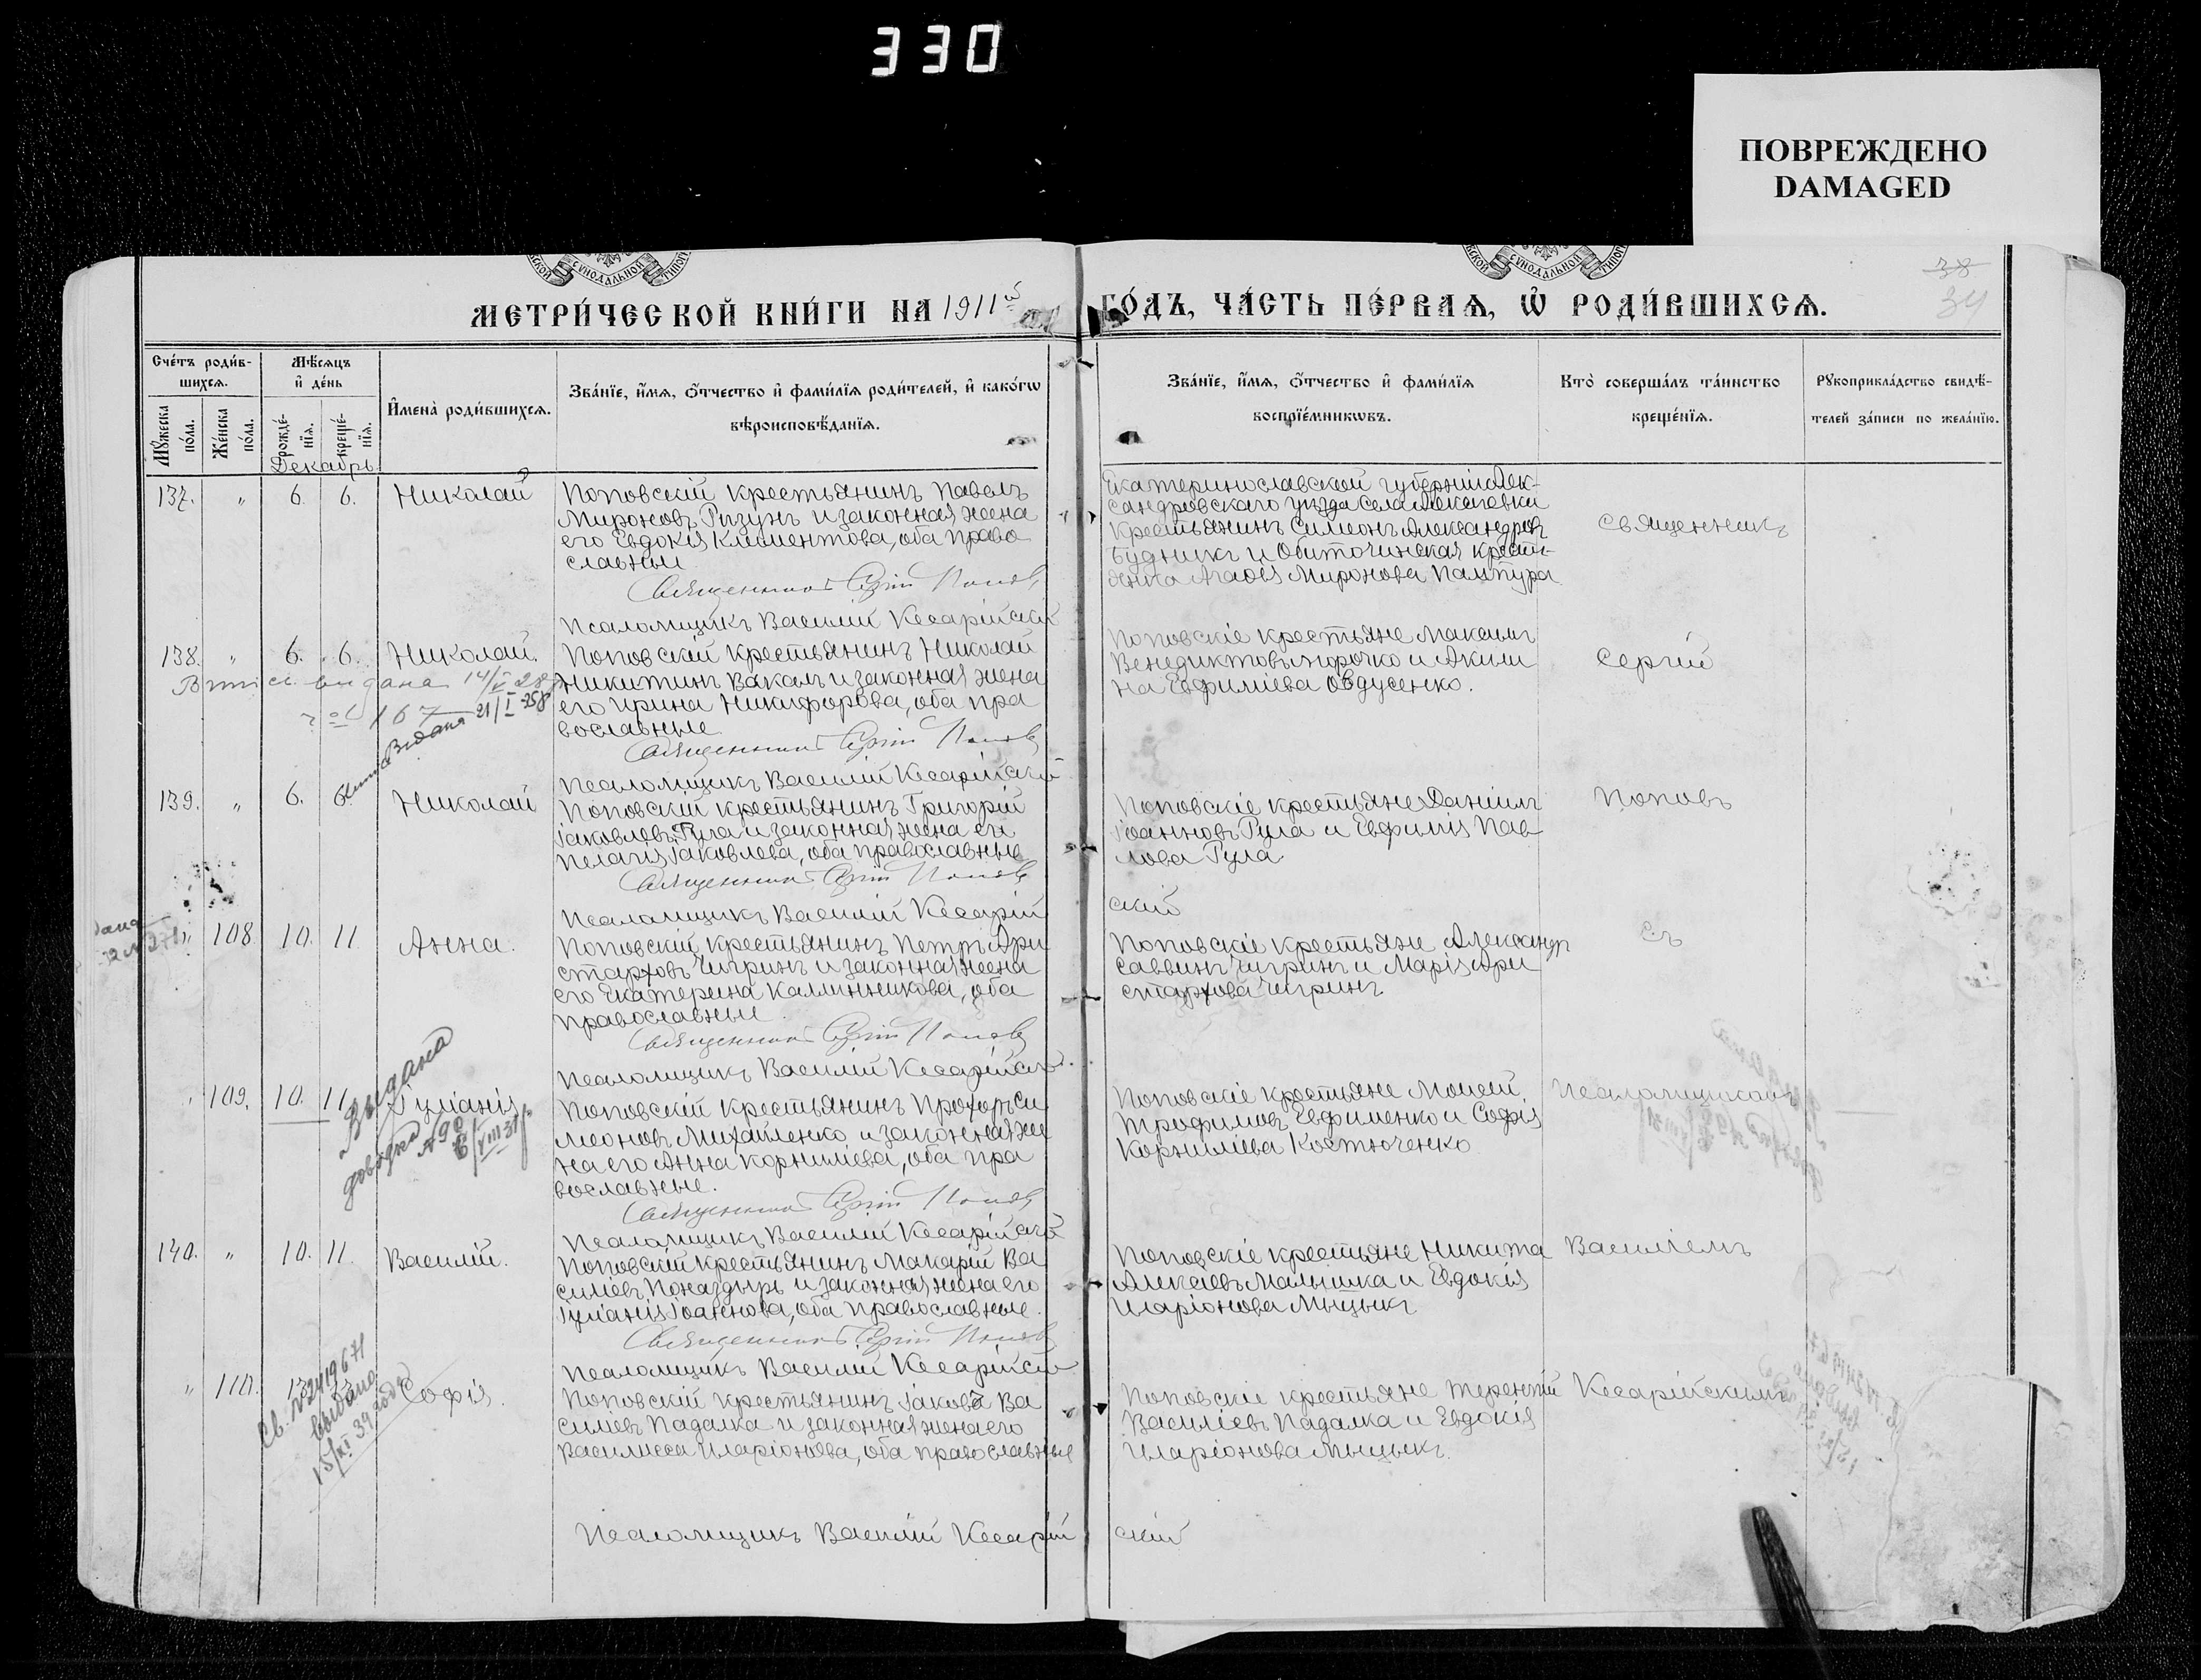 330
ПОВРЕЖДЕНО
DAMAGED
38
34
МЕТРИ́ЧЕСКОЙ КНИ́ГИ НА 1911й ГО́ДЪ, ЧА́СТЬ ПЕ́РВАѦ, Ѡ҆ РОДИ́ВШИХСѦ.
Сче́тъ роди́в-
шихсѧ.
Мꙋ́жеска по́ла.
Же́нска по́ла.
Мѣ́сѧцъ
и҆ де́нь
рожде́-
нїѧ.
креще́-
нїѧ.
И҆мена̀ роди́вшихсѧ.
Зва́нїе, и҆́мѧ, ѻ҆́тчество и҆ фами́лїѧ роди́телей, и҆ како́гѡ
вѣроисповѣ́данїѧ.
Зва́нїе, и҆́мѧ, ѻ҆́тчество и҆ фами́лїѧ
воспрїе́мникѡвъ.
Кто̀ соверша́лъ та́инство
креще́нїѧ.
Рꙋкоприкла́дство свидѣ́-
телей за́писи по жела́нїю.
Декабрь
137. " 6. 6. Николай
Поповскій крестьянинъ Павелъ
Мироновъ Ризунъ и законная жена
его Евдокія Климентова, оба право
славные
Священникъ Сергій Поповъ
Псаломщикъ Василій Кесарійскій
Екатеринославской губерніи Алек-
сандровскаго уѣзда села
крестьянинъ Симеонъ Александровъ
Будникъ и Обиточинская кресть-
янка Агафія Миронова
Священникъ
138. " 6. 6. Николай.
Поповскій крестьянинъ Николай
Никитинъ Вакалъ и законная жена
его Ирина Никифорова, оба пра
вославные
Священникъ Сергій Поповъ
Псаломщикъ Василій Кесарійскій
Поповскіе крестьяне Максимъ
Венедиктовъ и Акили
на Евфиміева Овдусенко.
Сергій
видана 14/
167
Видана 21/I
139. " 6. 6. Николай
Поповскій крестьянинъ Григорій
Іаковлевъ Гула и законная жена его
Пелагія Іаковлева, оба православные
Священникъ Сергій Поповъ
Псаломщикъ Василій Кесарій
скій
Поповскіе крестьяне Даніилъ
Іоанновъ Гула и Евфимія Пав
лова Гула
Поповъ
" 108 10. 11 Анна.
Поповскій крестьянинъ Петръ Ари
старховъ Чигринъ и законная жена
его Екатерина Каллинникова, оба
православные.
Священникъ Сергій Поповъ
Псаломщикъ Василій Кесарійскій.
Поповскіе крестьяне Александръ
Саввинъ Чигринъ и Марія Ари
стархова Чигринъ
съ
" 109. 10. 11. Іуліанія
Выдана
довідка
№ 90
6/VIII 31
Поповскій крестьянинъ Прохоръ Си
меоновъ Михайленко и законная же
на его Анна Корниліева, оба пра
вославные.
Священникъ Сергій Поповъ
Псаломщикъ Василій Кесарійскій
Поповскіе крестьяне Моисей
Трофимовъ Евфименко и Софія
Корниліева Костюченко
Псаломщикомъ
140. " 10. 11. Василій.
Поповскій крестьянинъ Макарій Ва
силіевъ Поназдырь и законная жена его
Іуліанія Іоаннова, оба православные.
Священникъ Сергій Поповъ
Псаломщикъ Василій Кесарійскій
Поповскіе крестьяне Никита
Алексіевъ Малышка и Евдокія
Иларіонова Мыцыкъ
Василіемъ
" 110. Софія.
Св. №
выдано
15/XI 39 года
Поповскій крестьянинъ Іаковъ Ва
силіевъ Падалка и законная жена его
Василисса Иларіонова, оба православные
Псаломщикъ Василій Кесарій
скій
Поповскіе крестьяне Терентій
Василіевъ Падалка и Евдокія
Иларіонова Мыцыкъ
Кесарійскимъ